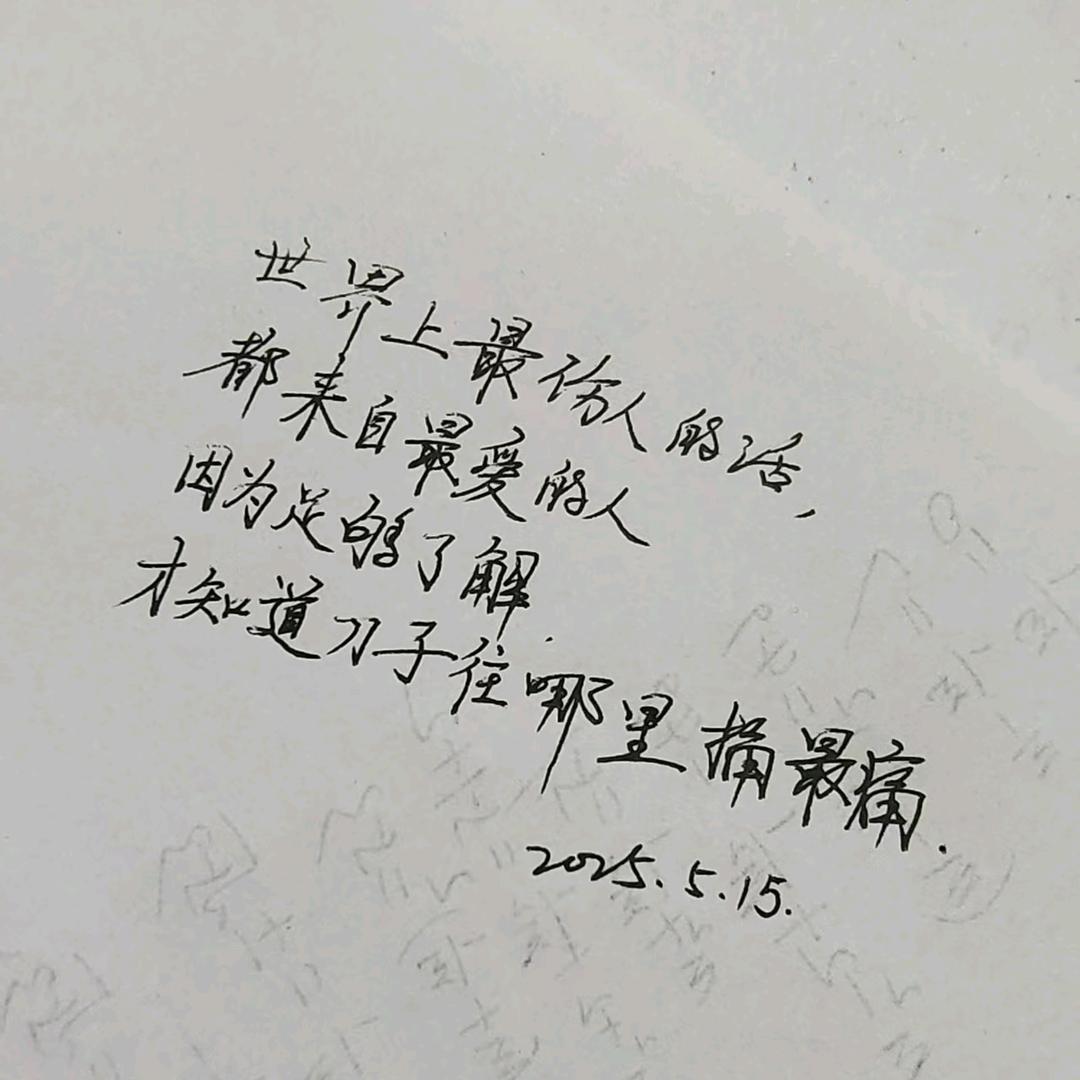 世界上最伤人的话，
都来自最爱的人
因为足够了解.
才知道刀子往哪里捅最痛.
2025.5.15.